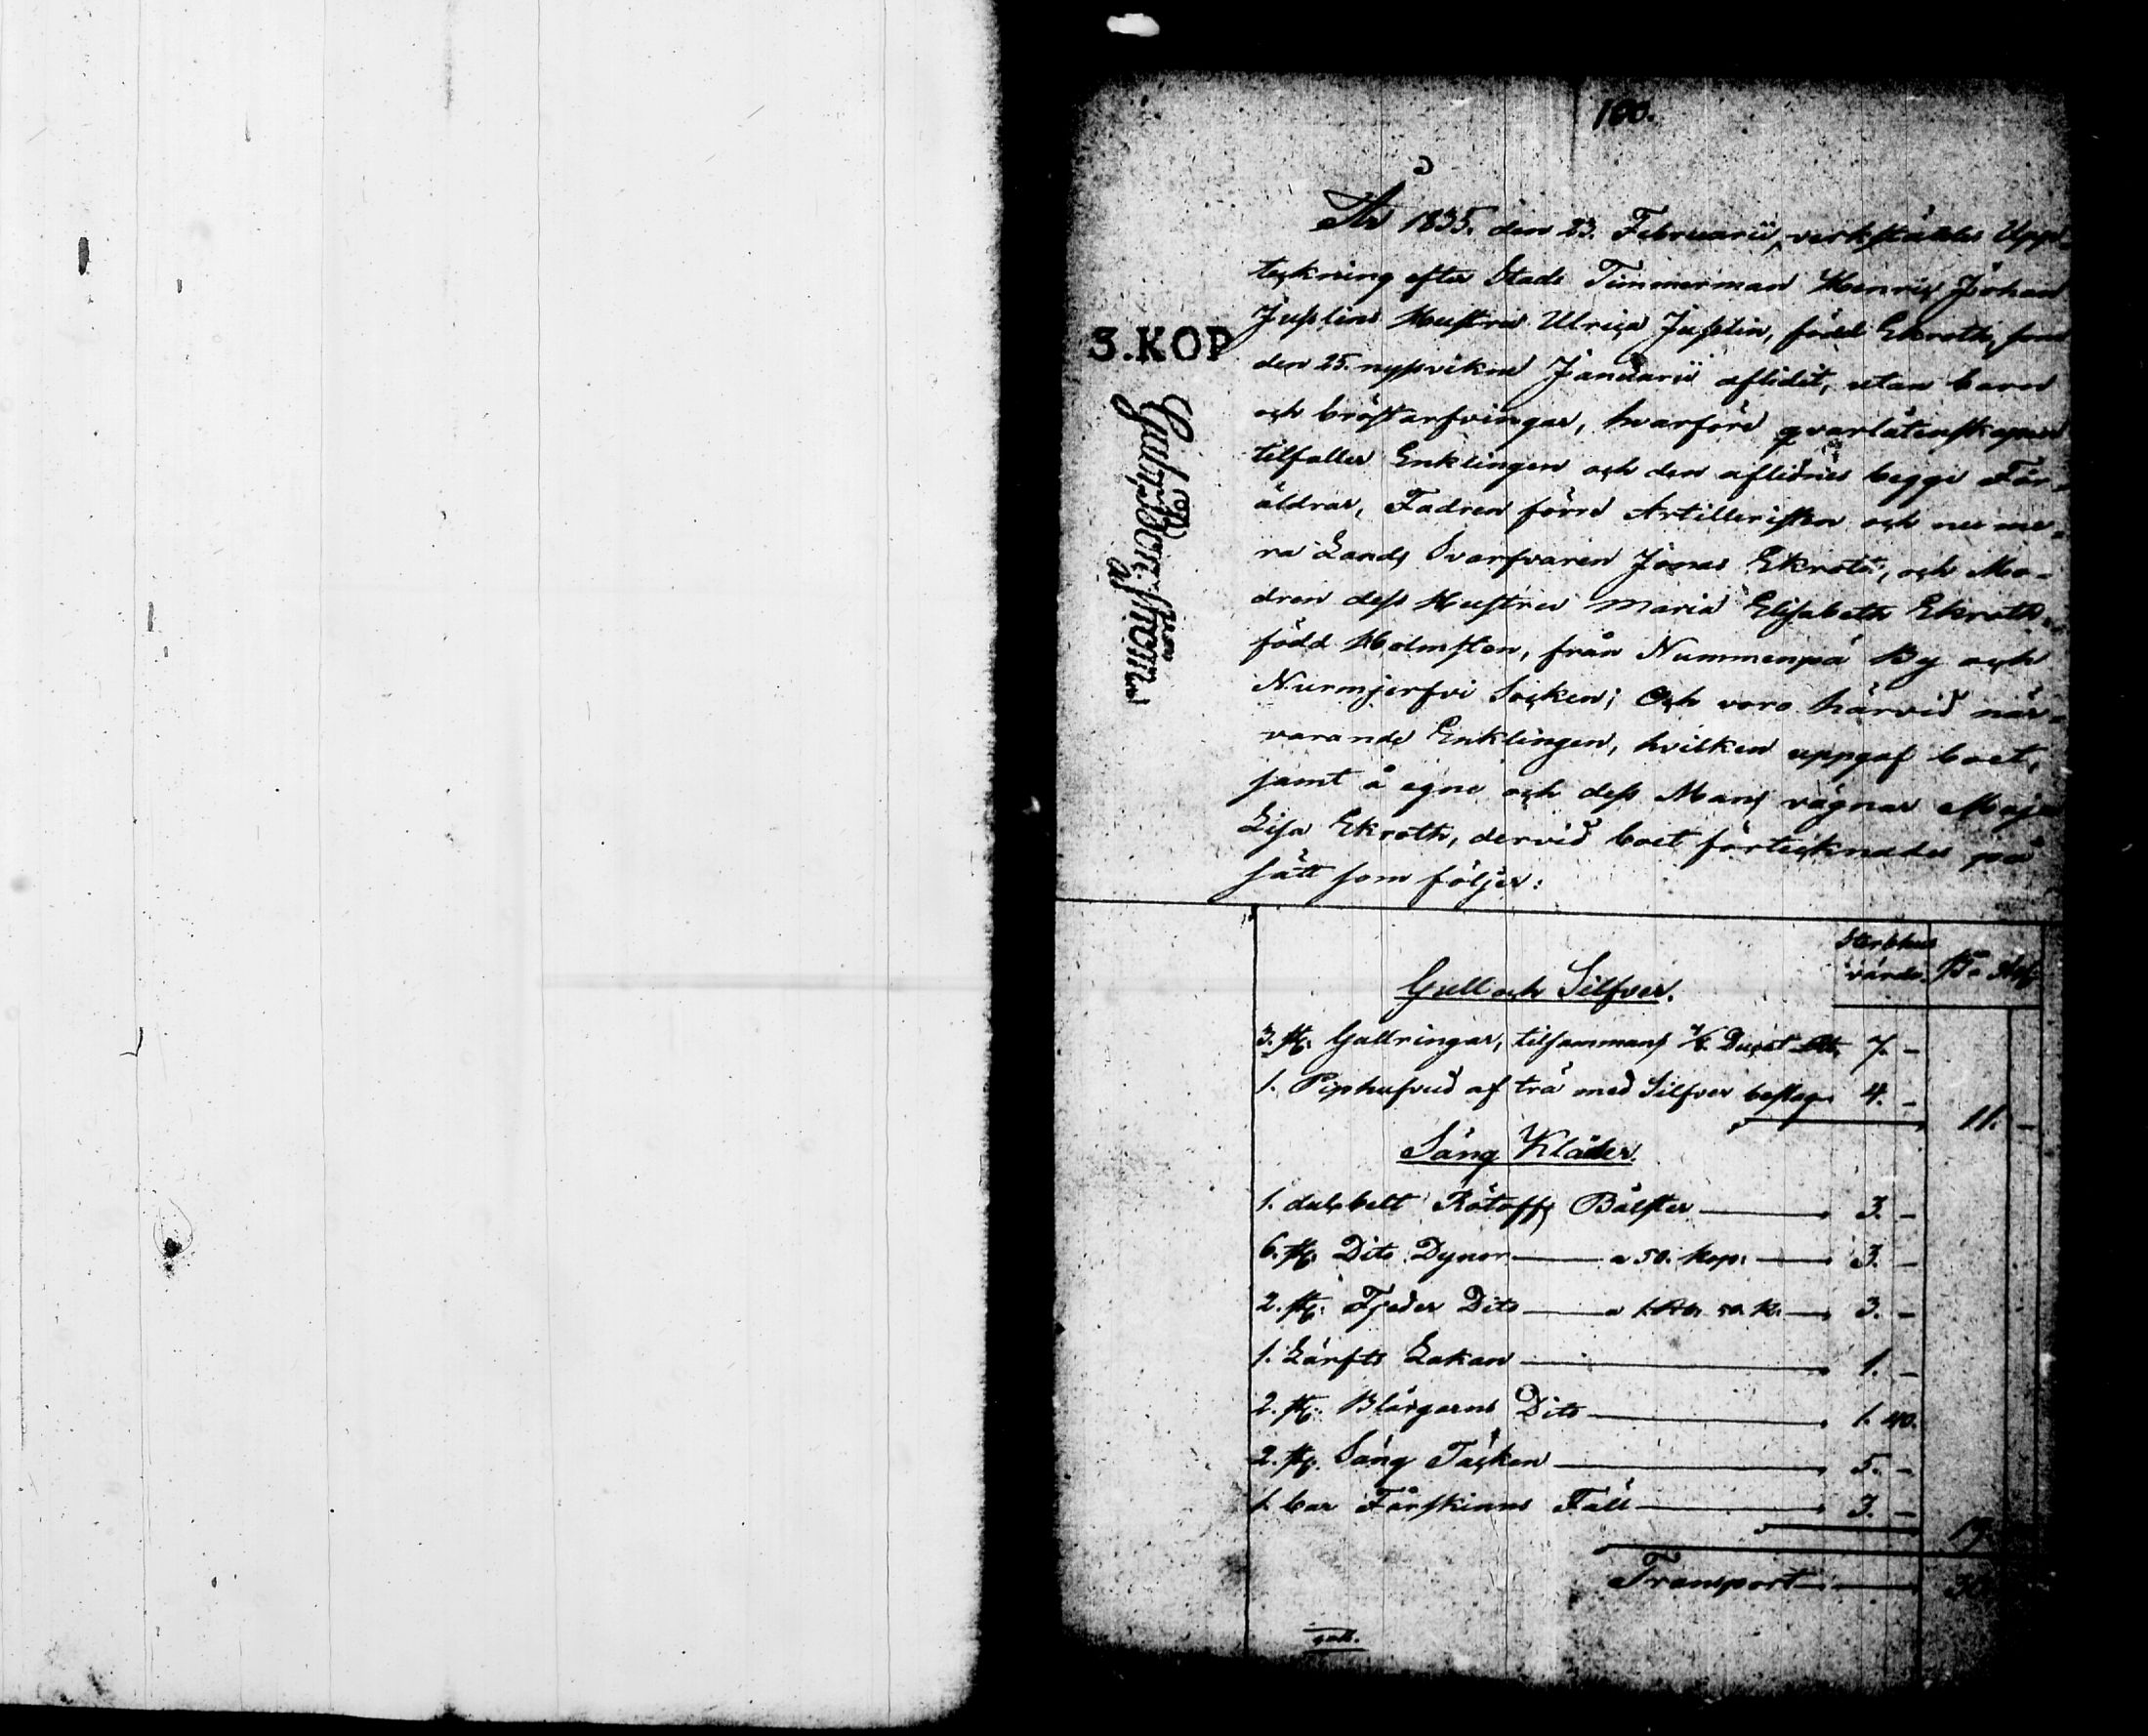 100.
År 1835. den 23. Februarii, verkstäldes Upp-
teckning efter Stads Timmerman Henric Johan
Juslins Hustru Ulrica Juslin, född Ekroth, som
den 25. nyssvikne Januarii aflidit, utan barn
och bröstarfvingar, hvarföre qvarlåtenskapen
tilfaller Enklingen och den aflidnes begge För-
äldrar, Fadren förre Artilleristen och nu me-
ra Lands Svarfvaren Jonas Ekroth, och Mo-
dren dess Hustru Maria Elisabeth Ekroth,
född Holmsten, från Nummenpä By och
Nurmjerfvi Socken; Och voro härvid när-
varande Enklingen, hvilken uppgaf boet,
samt å egne och dess Mans vägnar Maja
Lisa Ekroth, dervid boet förtecknades på
sätt som följer:
3.KOP
Sterbhus
värde. B:o Ass.
Gull och Silfver.
3. st. Gullringar, tilsammans Ducat 7. -
1. Piphufvud af trä med Silfver beslag 4. -
11. -
Säng Kläder.
1. dubbelt Bålster 3. -
6. st. Dito Dynor a 50. kop. 3. -
2. st. Fjeder Dito a 1. Rb. 50. k. 3. -
1. Lärfts Lakan 1. -
2. st. Blårgarns Dito 1. 40.
2. st. Säng Täcken 5. -
1. bar Fårskinns Fäll 3. -
19.
Transport 30.